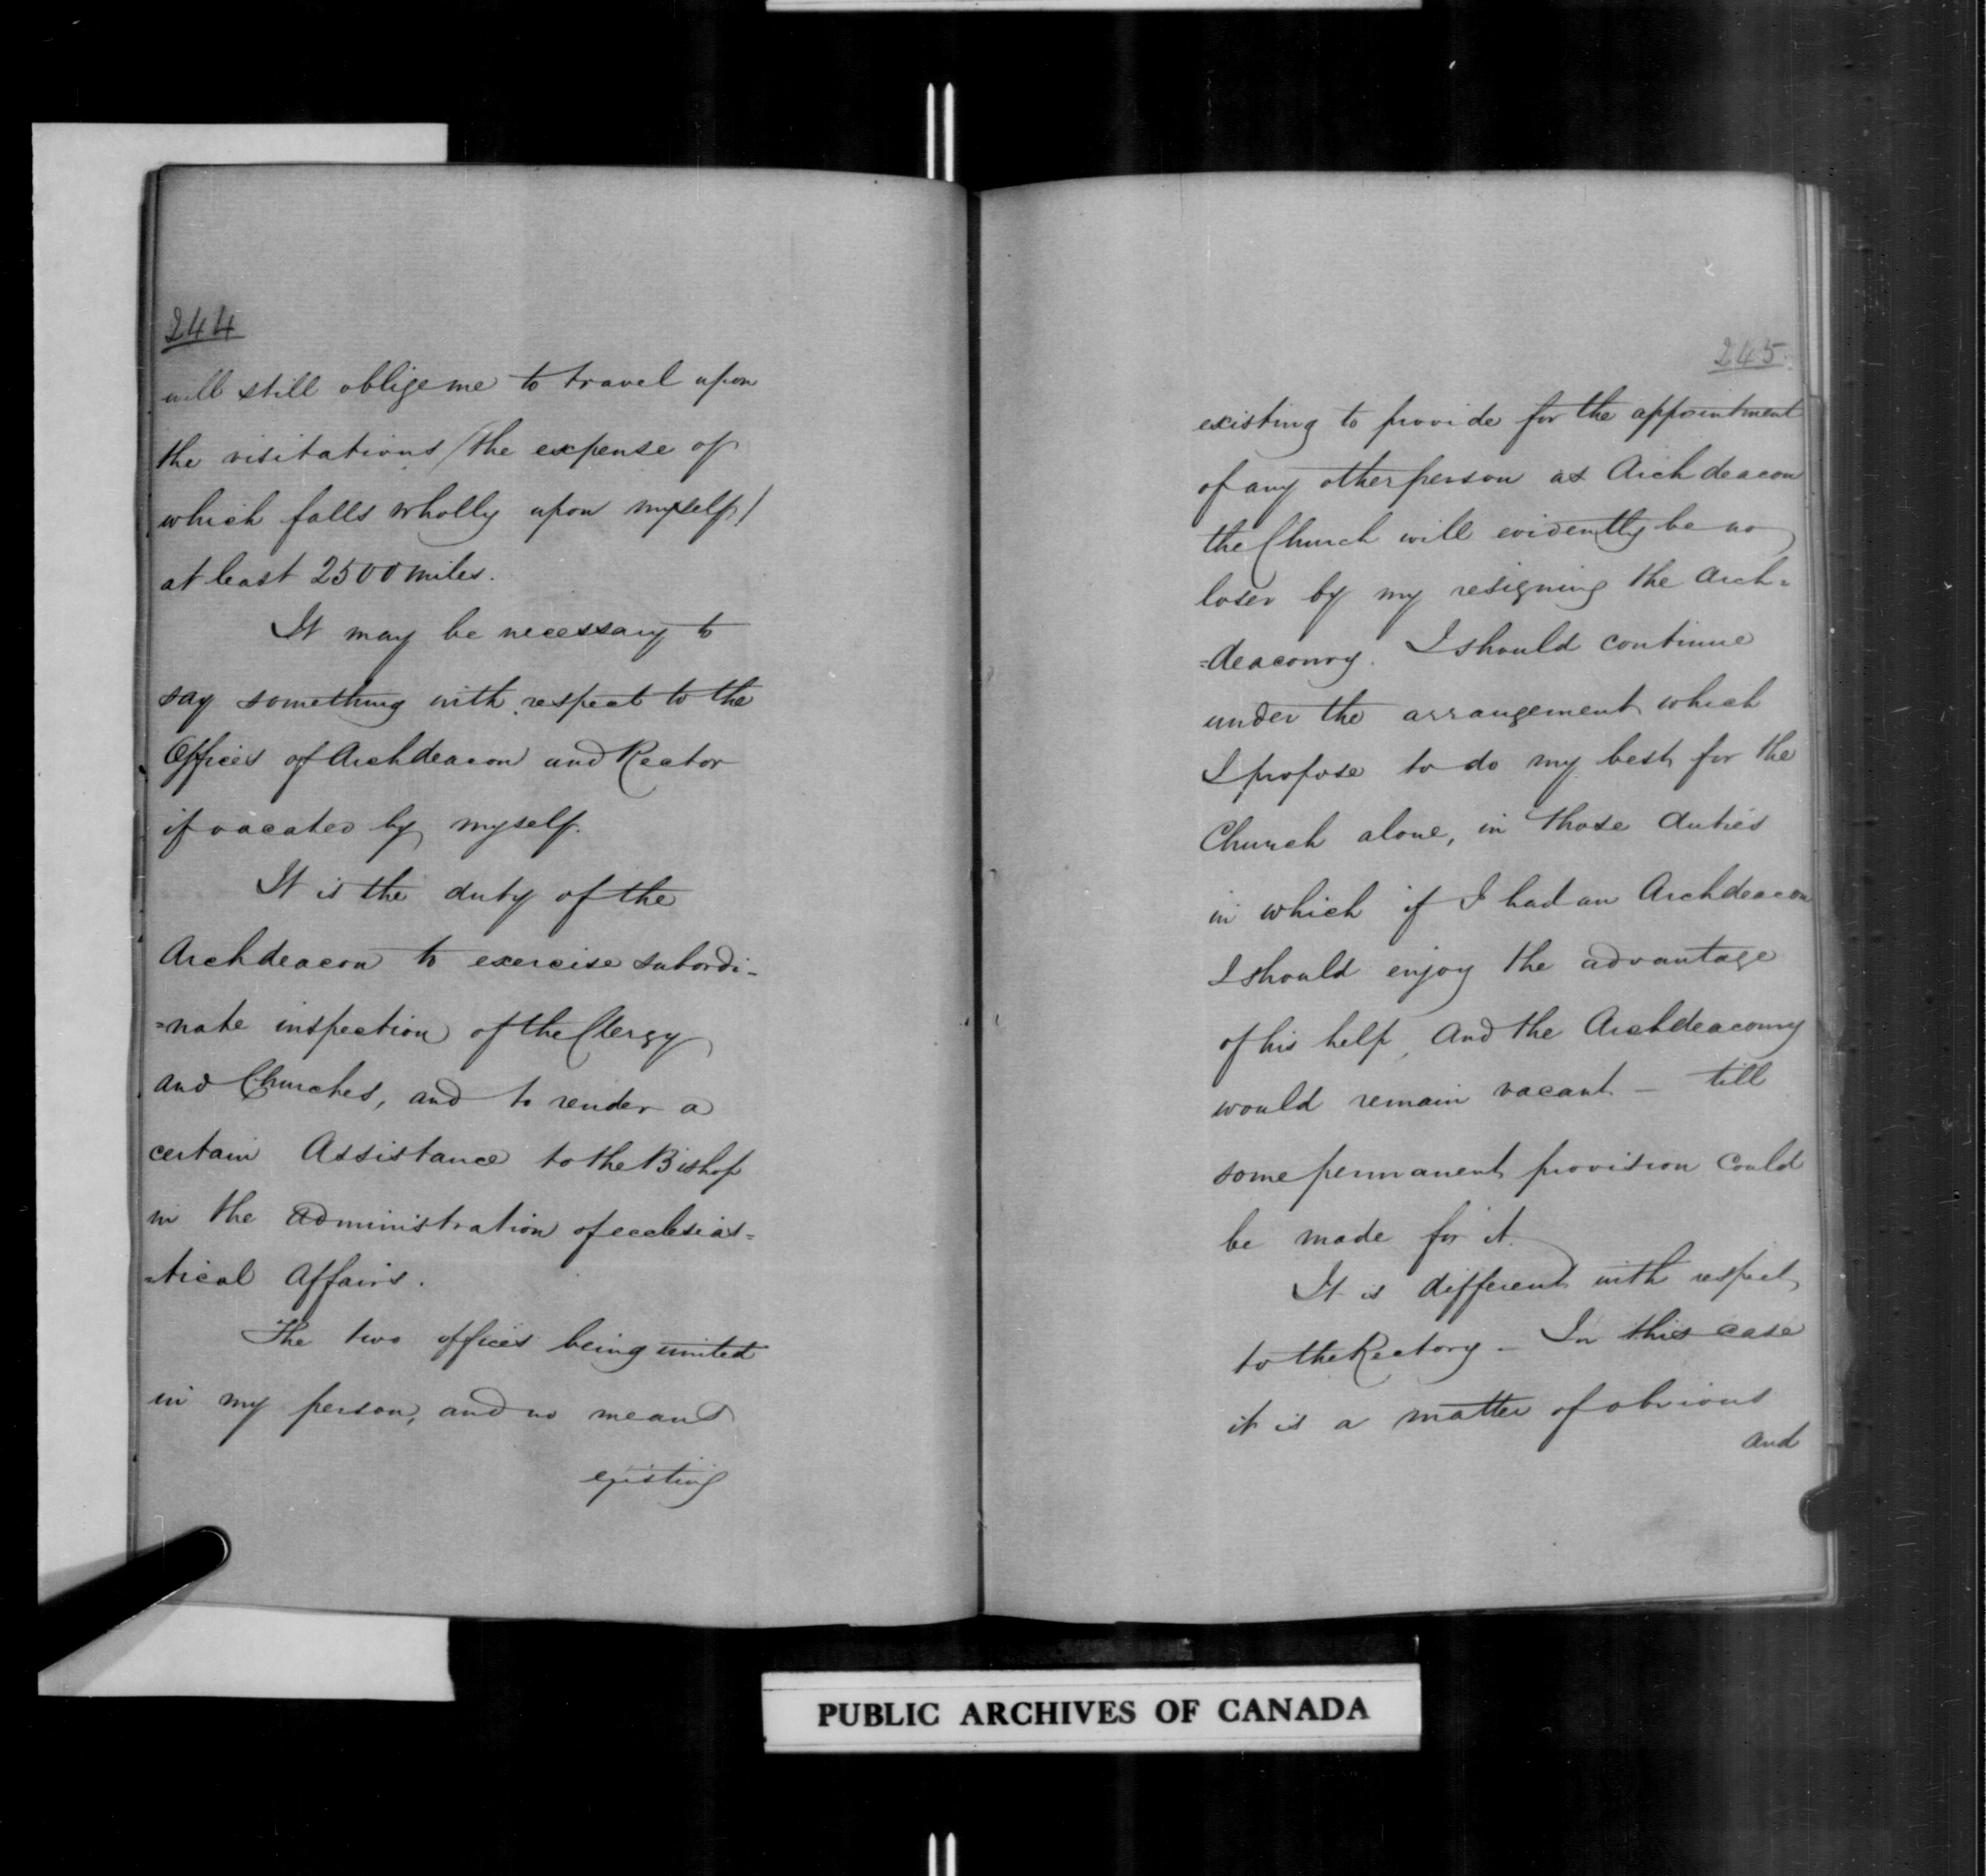 244
will still oblige me to travel upon
the visitations /the expense of
which falls wholly upon myself/
at least 2500 miles.
It may be necessary to
say something with respect to the
Offices of Archdeacon and Rector
if vacated by myself.
It is the duty of the
Archdeacon to exercise subordi-
=nate inspection of the Clergy
and Churches, and to render a
certain Assistance to the Bishop
in the administration of ecclesias=
=tical Affairs.
The two offices being united
in my person, and no means
existing
245.
existing to provide for the appointment
of any other person as Archdeacon
the Church will evidently be no
loser by my resigning the Arch=
=deaconry. I should continue
under the arrangement which
I propose to do my best for the
Church alone, in those duties
in which if I had an Archdeacon
I should enjoy the advantage
of his help, and the Archdeaconry
would remain vacant - till
some permanent provision could
be made for it.
It is different with respect
to the Rectory - In this case
it is a matter of obvious
and
PUBLIC ARCHIVES OF CANADA